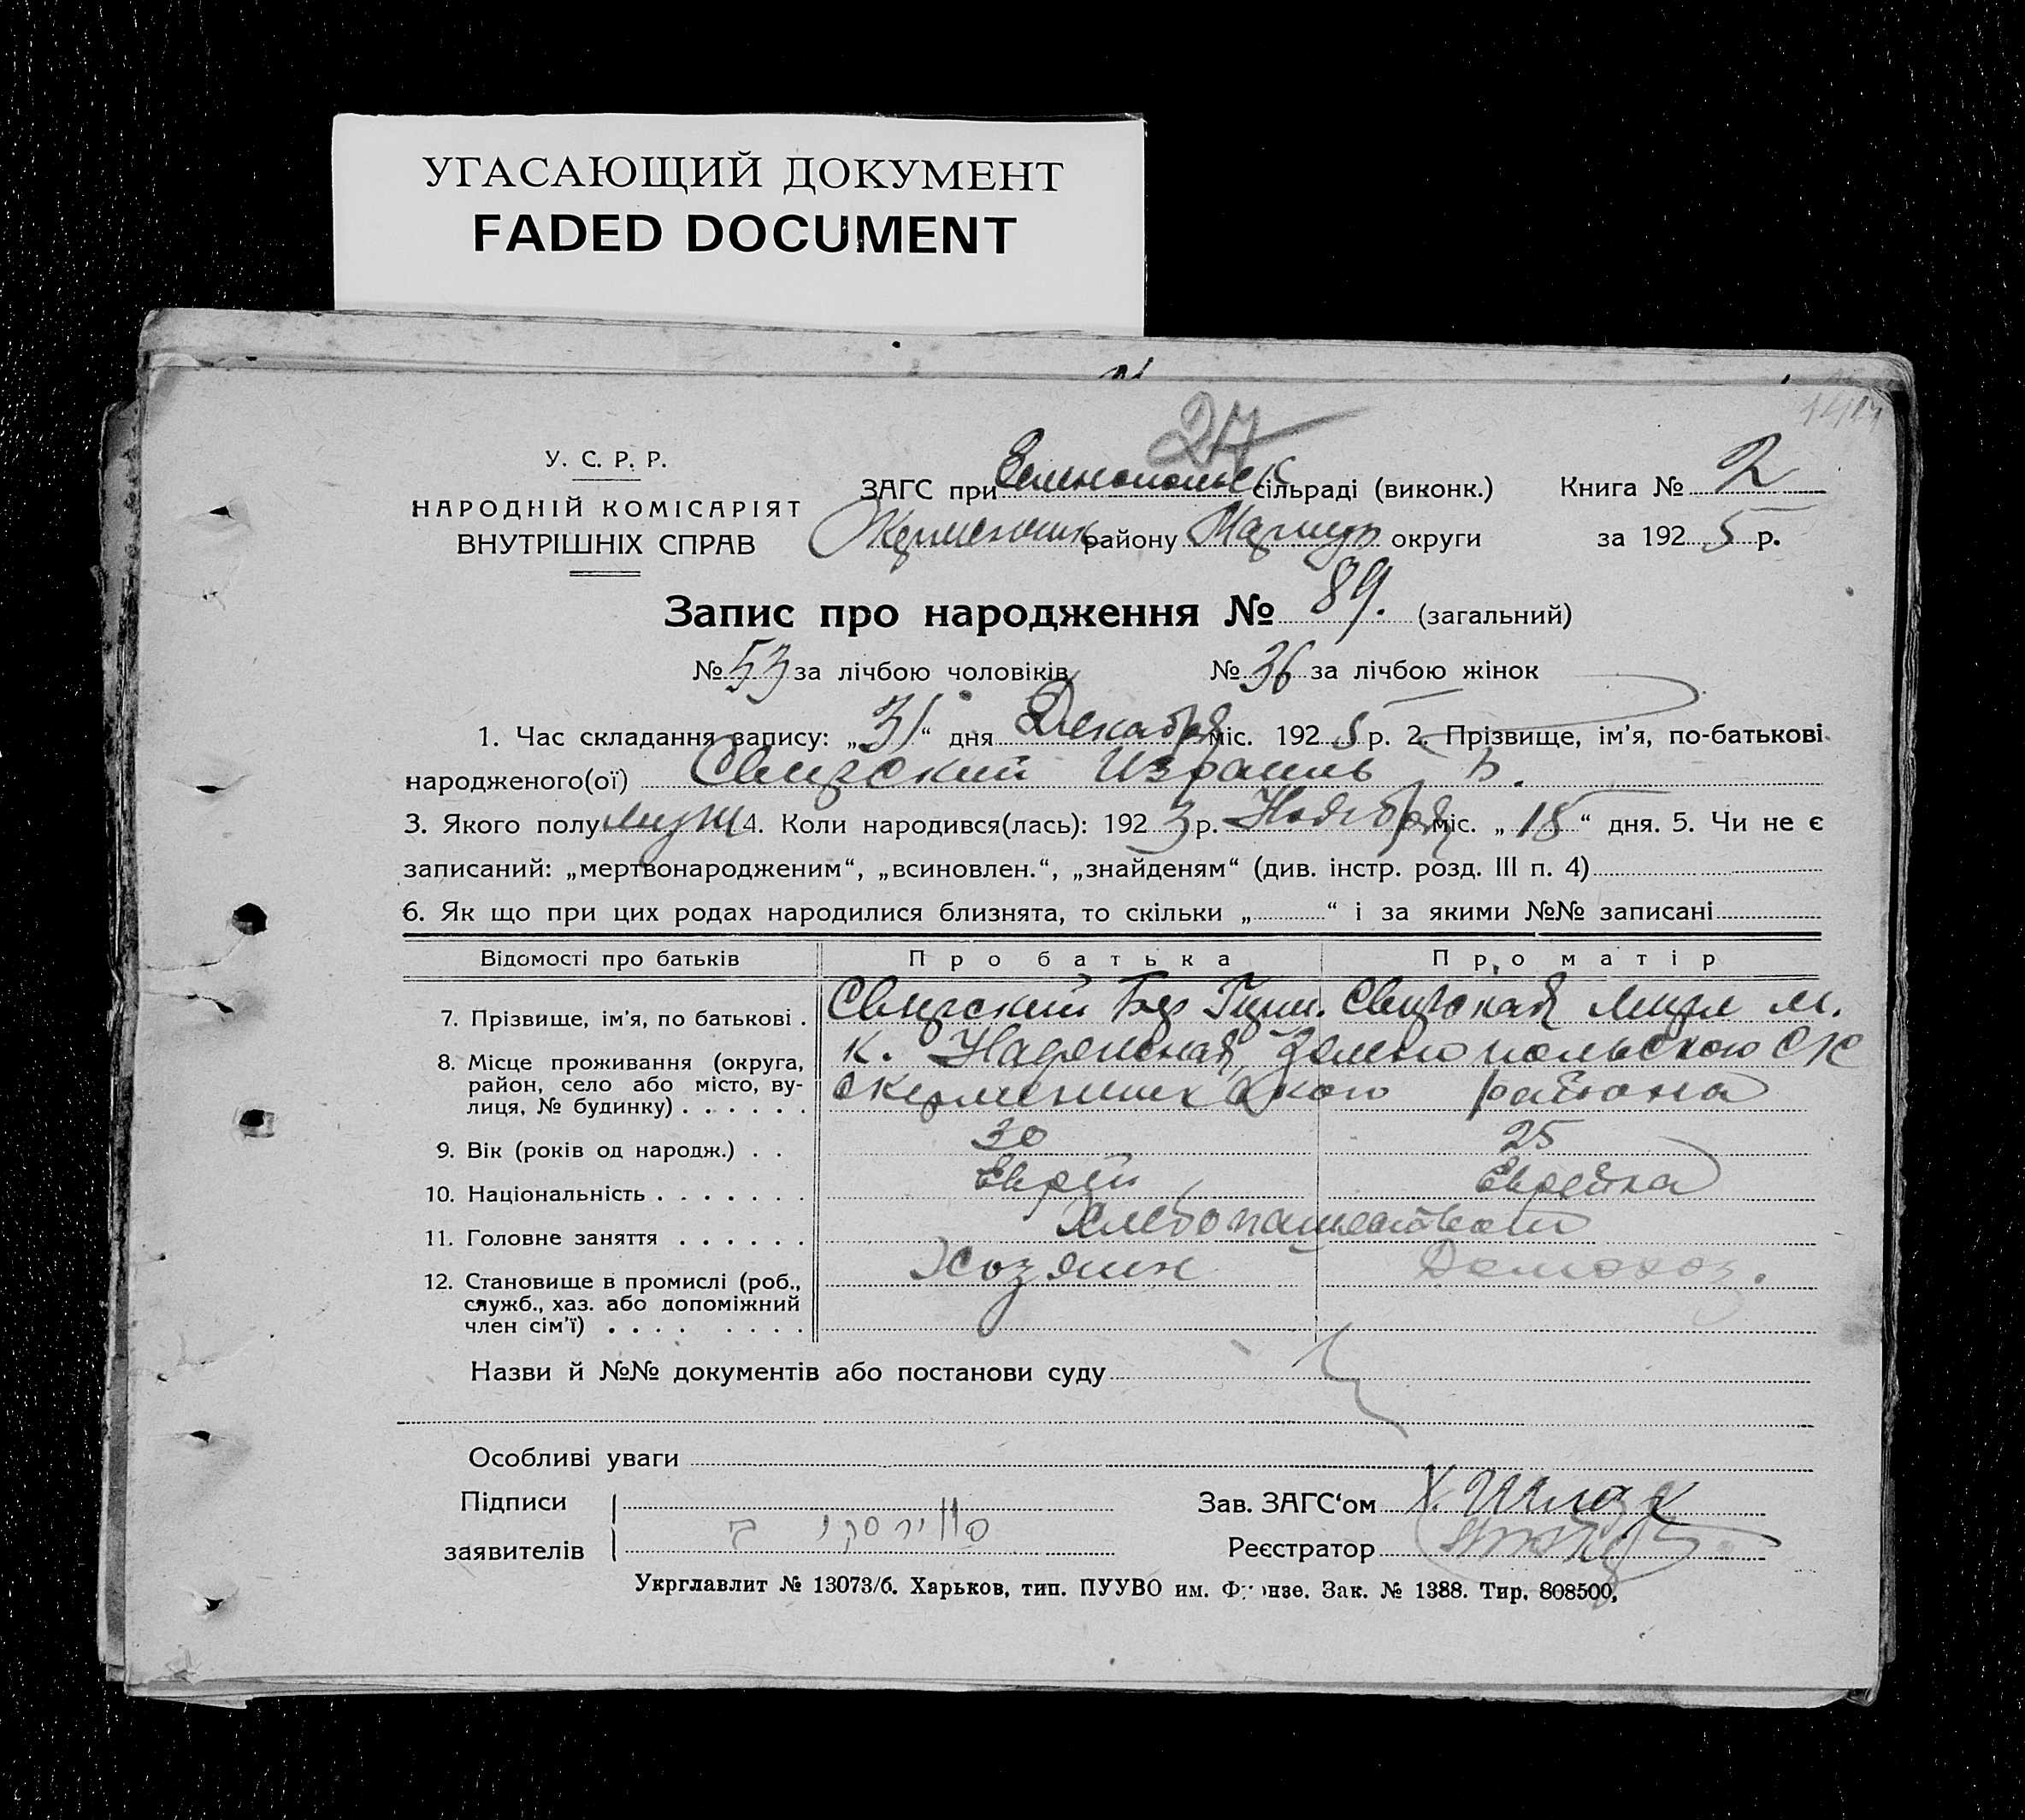 УГАСАЮЩИЙ ДОКУМЕНТ
FADED DOCUMENT
27
У. С. Р. Р.
НАРОДНІЙ КОМІСАРІЯТ
ВНУТРІШНІХ СПРАВ
ЗАГС при Зеленопольск сільраді (виконк.) Книга № 2
Керменчик району Мариуп округи за 1925 р.
Запис про народження № 89. (загальний)
№ 53 за лічбою чоловіків № 36 за лічбою жінок
1. Час складання запису: „31“ дня Декабря міс. 1925 р. 2. Прізвище, ім’я, по-батькові
народженого(ої) Свирский Израиль Б.
3. Якого полу муж 4. Коли народився(лась): 1923 р. Ноября міс. „15“ дня. 5. Чи не є
записаний: „мертвонародженим“, „всиновлен.“, „знайденям“ (див. інстр. розд. III п. 4)
6. Як що при цих родах народилися близнята, то скільки „ “ і за якими №№ записані
Відомості про батьків Про батька Про матір
7. Прізвище, ім’я, по батькові . Свирский Бер Свирская М.
8. Місце проживання (округа, район, село або місто, вулиця, № будинку) . . . . . . к. Надежная, Зеленопольского СС
Керменчикского района
9. Вік (років од народж.) . . 30 25
10. Національність . . . . . . . Еврей Еврейка
11. Головне заняття . . . . . . Хлебопашеством
12. Становище в промислі (роб., служб., хаз. або допоміжний член сім’ї) . . . . . . . . Хозяин Домохоз.
Назви й №№ документів або постанови суду
Особливі уваги
Підписи Зав. ЗАГС‘ом Х. Шпак
заявителів סווירסקי ב Реєстратор
Укрглавлит № 13073/б. Харьков, тип. ПУУВО им. Фрунзе. Зак. № 1388. Тир. 808500,